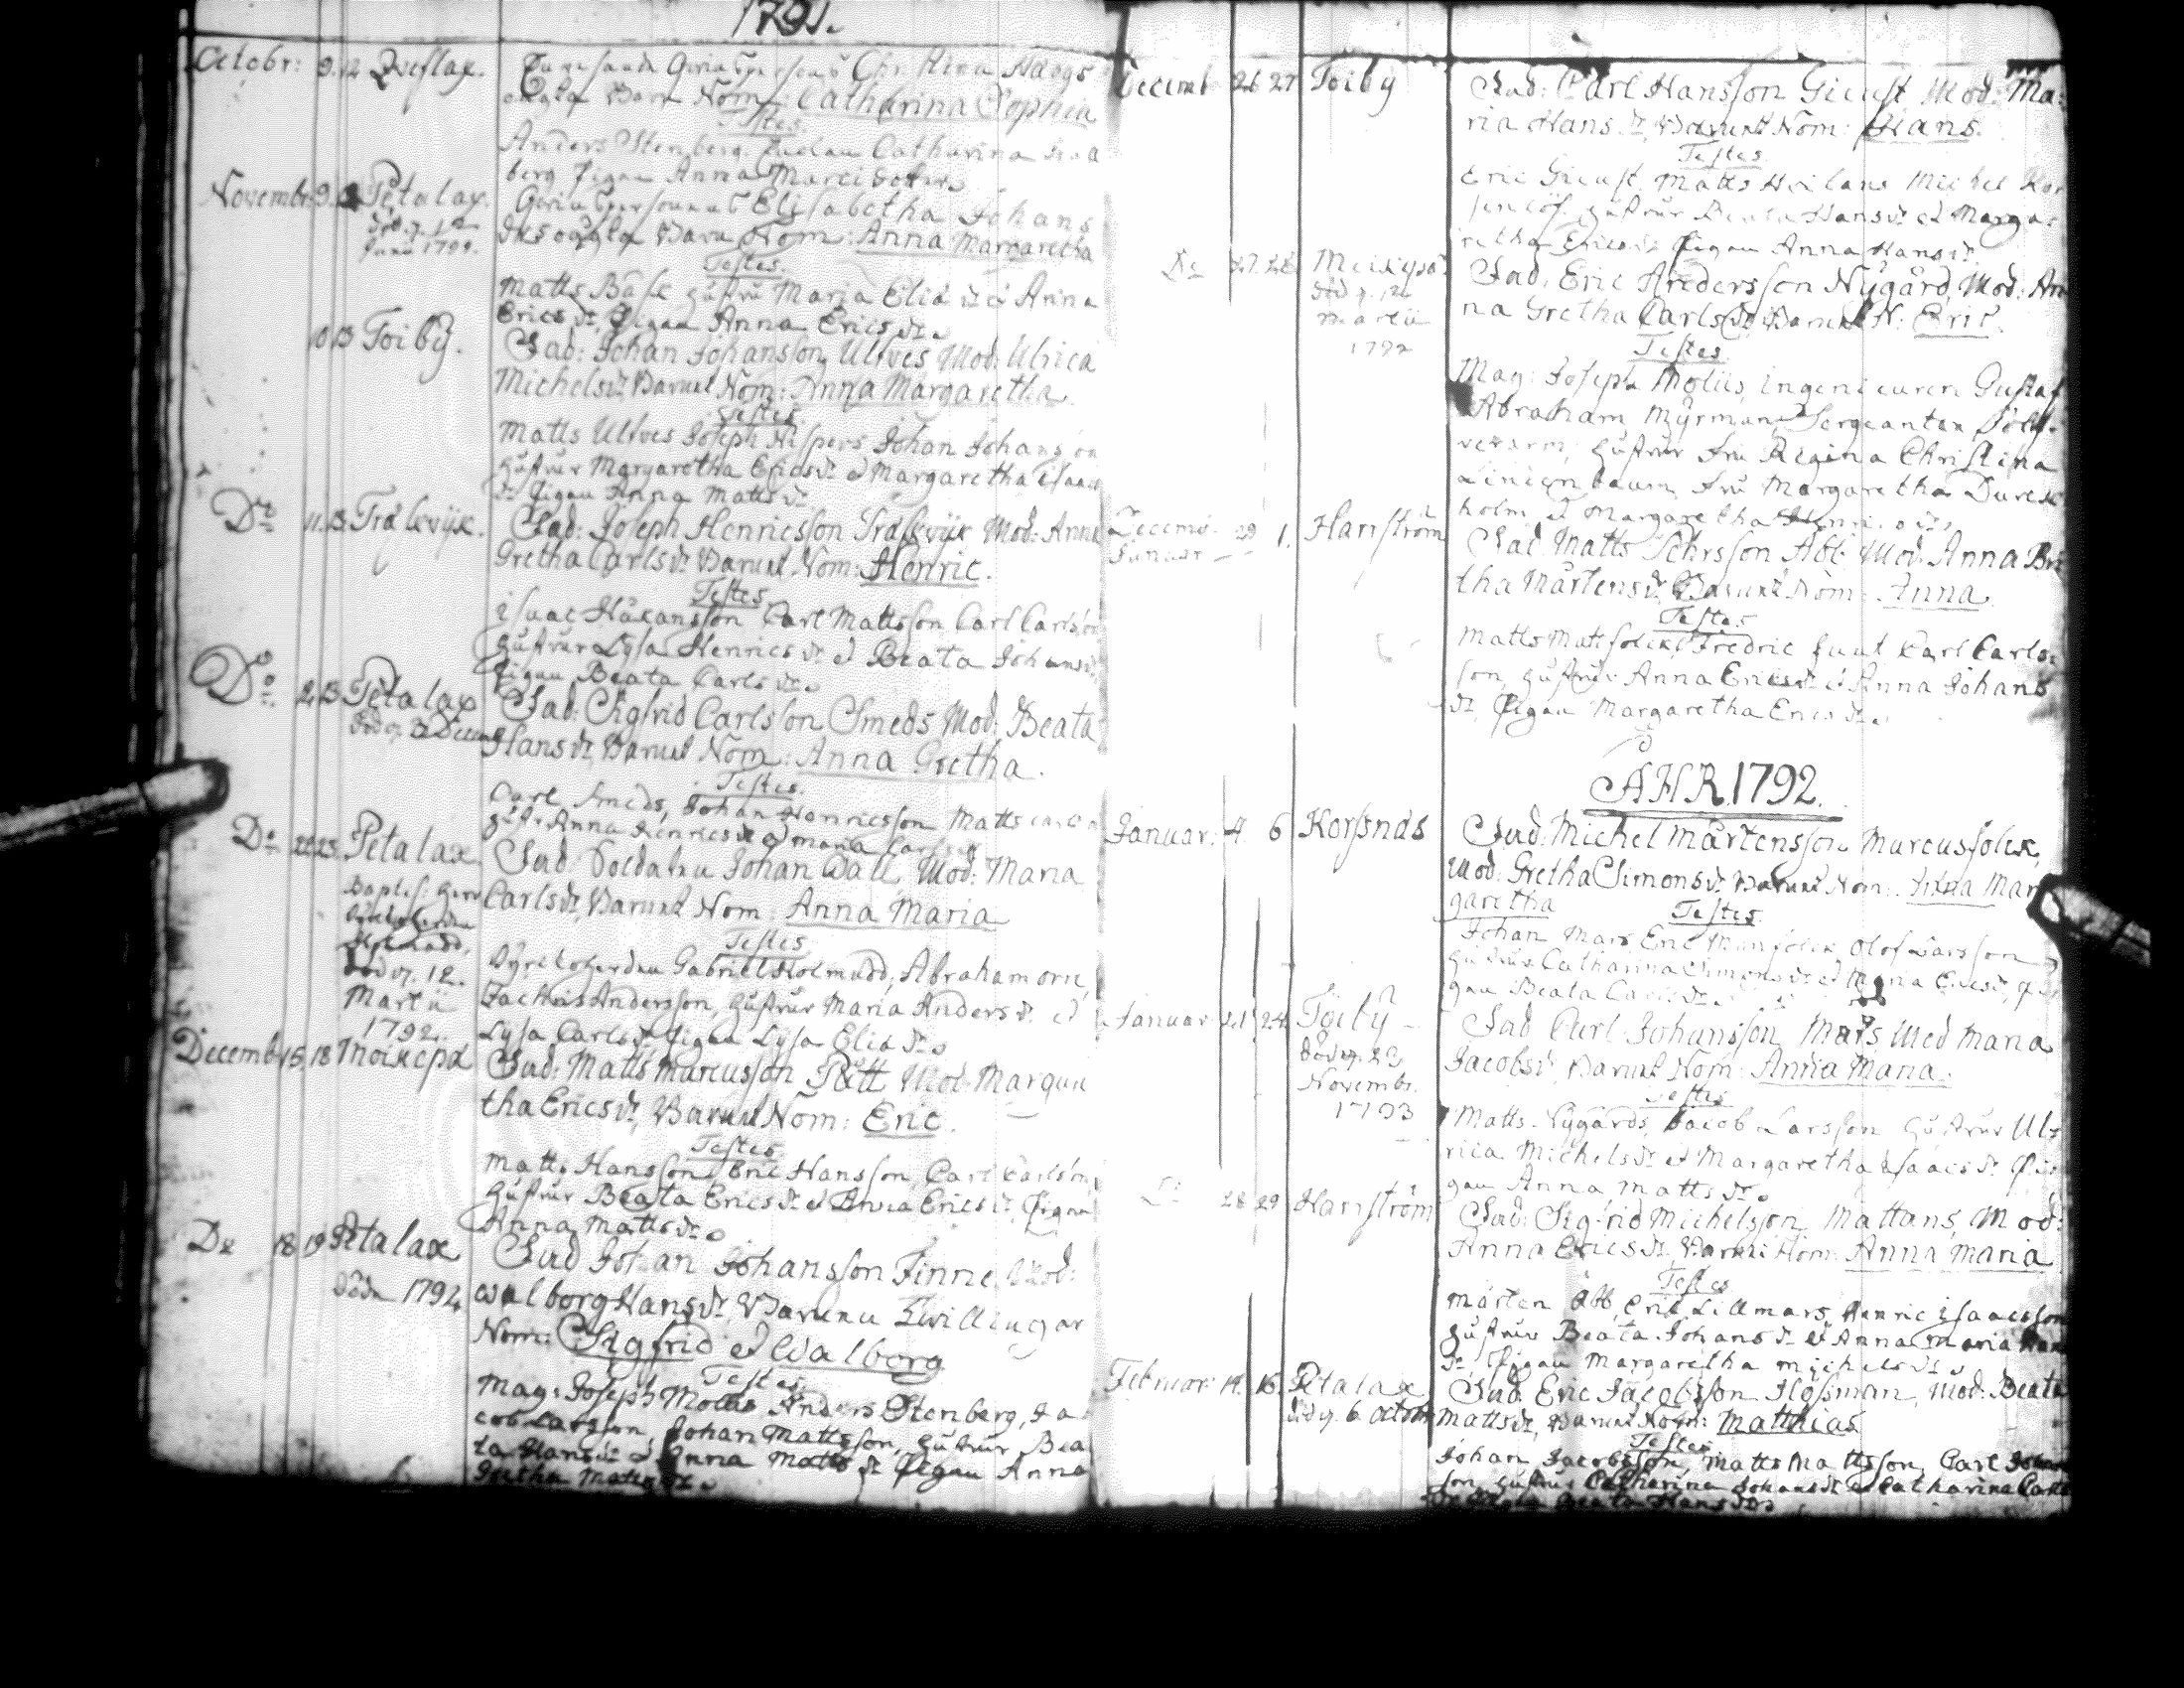 1791.
Octobr: 9. 12
Christina
Barn Nom: Catharina Sophia
Testes.
Anders Stenberg, Catharina
berg Pigan Anna
Novembr 9. Petalax.
död d. 12
Junii
Elisabetha Johans
dr oägta Barn Nom: Anna Margaretha
Testes.
Matts Hustru Maria Elis dr et Anna
Erics dr, Pigan Anna Erics dr.
10 13 Töiby.
Fad: Johan Johansson Ulfves Mod: Ulrica
Michels dr Barnet Nom: Anna Margaretha.
Testes.
Matts Ulfves Joseph Nispers Johan Johansson
Hustrur Margaretha Erics dr et Margaretha Isaacs
dr Pigan Anna Matts dr
Do 11. 13. Träskvijk.
Fad: Joseph Henricsson Träskvijk Mod: Anna
Gretha Carls dr Barnet Nom: Henric.
Testes
Isaac Håkansson Carl Mattsson Carl Carlsson
Hustrur Lysa Henrics dr et Beata Johans dr
Pigan Beata Carls dr.
Do Petalax
Fad: Sigfrid Carlsson Smeds Mod: Beata
Hans dr, Barnet Nom: Anna Gretha.
Testes.
Carl Smeds, Johan Henricsson Matts
Hustr Anna Henrics dr et Maria Carls dr
Do Petalax
Baptis. Herr
död d. 12.
Martii
1792.
Fad: Soldaten Johan Wall, Mod: Maria
Carls dr, Barnet Nom: Anna Maria
Testes
Gabriel Holmudd, Abraham Orn,
Zachris Andersson, Hustrur Maria Anders dr et
Lysa Carls dr Pigan Lysa Elis dr
Decemb 15, 18
Fad: Matts Marcusson Rått Mod: Margare
tha Erics dr, Barnet Nom: Eric.
Testes
Matts Hansson, Eric Hansson, Carl Carlsson
Hustrur Beata Erics dr et Anna Erics dr, Pigan
Anna Matts dr
Do 18 19 Petalax
döda 1792
Fad Johan Johansson Finne, Mod:
Walborg Hans dr, Barnen Twillingar
Nom: Sigfrid et Walborg
Testes
Mag: Joseph Molliis Anders Stenberg, Ja
cob Larsson, Johan Mattsson, Hustrur Bea
ta Hans dr et Anna Matts dr Pigan Anna
Gretha Matts dr
Decemb 26 27 Töiby
Fad: Carl Hansson Gieust Mod: Ma:
ria Hans dr, Barnet Nom: Hans.
Testes
Eric Gieust, Matts Michel Kor
Hustrur Beata Hans dr et Marga:
retha Erics dr Pigan Anna Hans dr.
Do 27. 28.
död d. 12
Martii
1792
Fad: Eric Andersson Nygård, Mod: An
na Gretha Carls dr, Barnet N: Eric.
Testes
Mag: Joseph Moliis, Ingenieuren Gustaf
Abraham Myrman, Sergeanten
Hustrur Fru Regina Christina
Fru Margaretha
holm et Margaretha
Decemb. 29
Januar 1. Harrström
Fad: Matts Abb Mod: Anna Bri
tha Mårtens dr, Barnet Nom: Anna.
Testes
Matts Fredric Carl Carls:
son, Hustrur Anna Erics dr et Anna Johans
dr, Pigan Margaretha Erics dr.
AHR 1792.
Januar: 4. 6 Korsnäs
Fad: Michel Mårtensson Marcusfolck,
Mod: Gretha Simons dr Barnet Nom: Anna Mar
garetha
Testes.
Johan Mars Eric Olof Larsson
Hustrur Catharina Simons dr et Maria Erics dr, Pi
gan Beata Carls dr.
Januar 21 24 Töiby
död d. 23
Novembr.
1793
Fad Carl Johansson Mars Mod Maria
Jacobs dr Barnet Nom: Anna Maria.
Testes
Matts Nygårds, Jacob Larsson Hustrur Ul:
rica Michels dr et Margaretha Isaacs dr Pi
gan Anna Matts dr
Do 28 29 Harrström
Fad: Sigfrid Michelsson Mattans, Mod:
Anna Erics dr, Barnet Nom: Anna Maria
Testes
Mårten Abb, Eric Lillmars, Henric Isaacsson
Hustrur Beata Johans dr et Anna Maria
dr Pigan Margaretha Michels dr
Februar: 14. 16. Petalax
död d. 6. Octobr
Fad: Eric Jacobsson Flosman, Mod: Beata
Matts dr, Barnet Nom: Matthias
Testes
Johan Jacobsson, Matts Mattsson, Carl Johan
son, Hustrur Catharina Johans dr et Catharina Carls
dr Pigan Beata Hans dr.